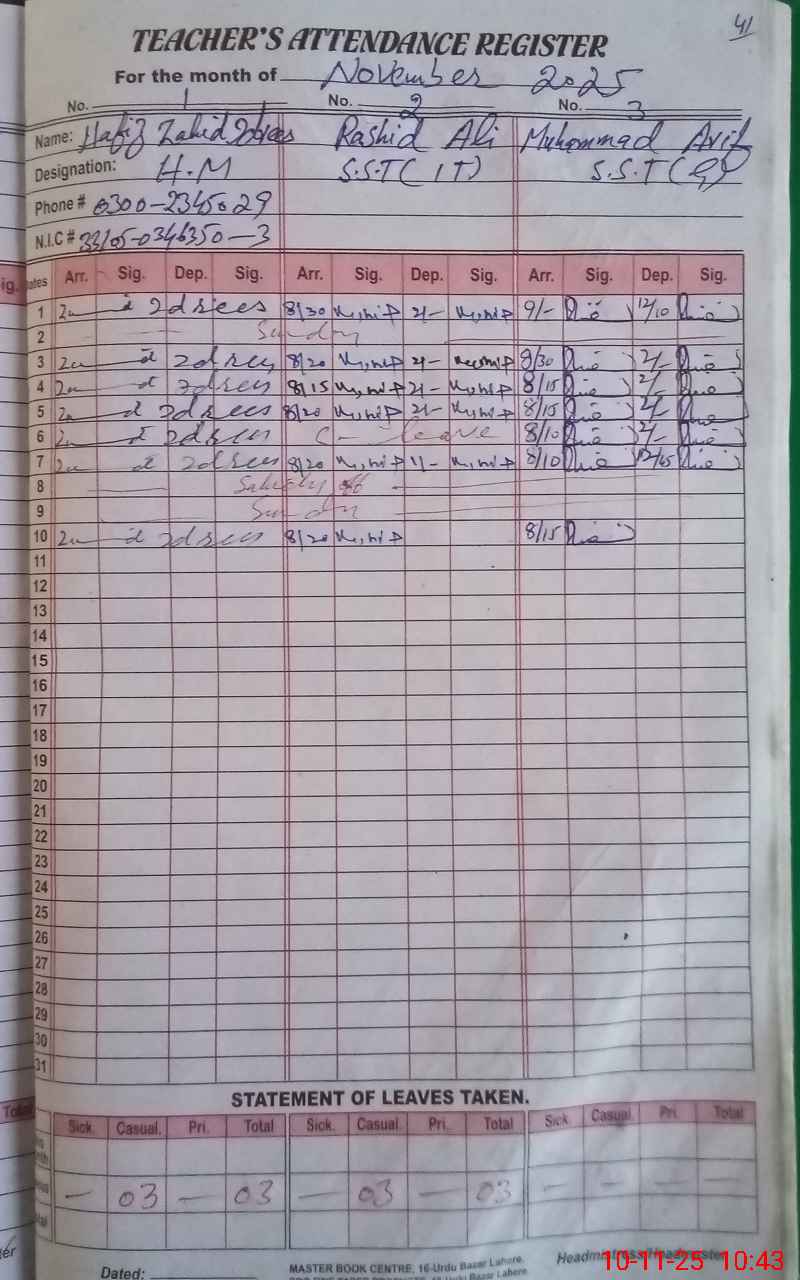 41
TEACHER'S ATTENDANCE REGISTER
For the month of November 2025
No. 1 No. 2 No. 3
Name: Hafiz Zahid Idrees Rashid Ali Muhammad Arif
Designation: H.M S.S.T (IT) S.S.T (G)
Phone # 0300-2345029
N.I.C # 33105-0346350-3
ig. ates Arr. Sig. Dep. Sig. Arr. Sig. Dep. Sig. Arr. Sig. Dep. Sig.
1 Idrees 8/30 2/- 9/- 12/10
2 Sunday
3 Idrees 8/20 2/- 8/30 2/-
4 Idrees 8/15 2/- 8/15 2/-
5 Idrees 8/20 2/- 8/15 2/-
6 Idrees C - leave 8/10 2/-
7 Idrees 8/20 1/- 8/10 12/45
8 off
9 Sunday
10 Idrees 8/20 8/15
11
12
13
14
15
16
17
18
19
20
21
22
23
24
25
26
27
28
29
30
31
STATEMENT OF LEAVES TAKEN.
Total Sick. Casual. Pri. Total Sick. Casual. Pri. Total Sick. Casual. Pri. Total
— 03 — 03 — 03 — 03 — — — —
Dated: MASTER BOOK CENTRE, 16-Urdu Bazar Lahore. Headmistress/Headmaster
10-11-25 10:43